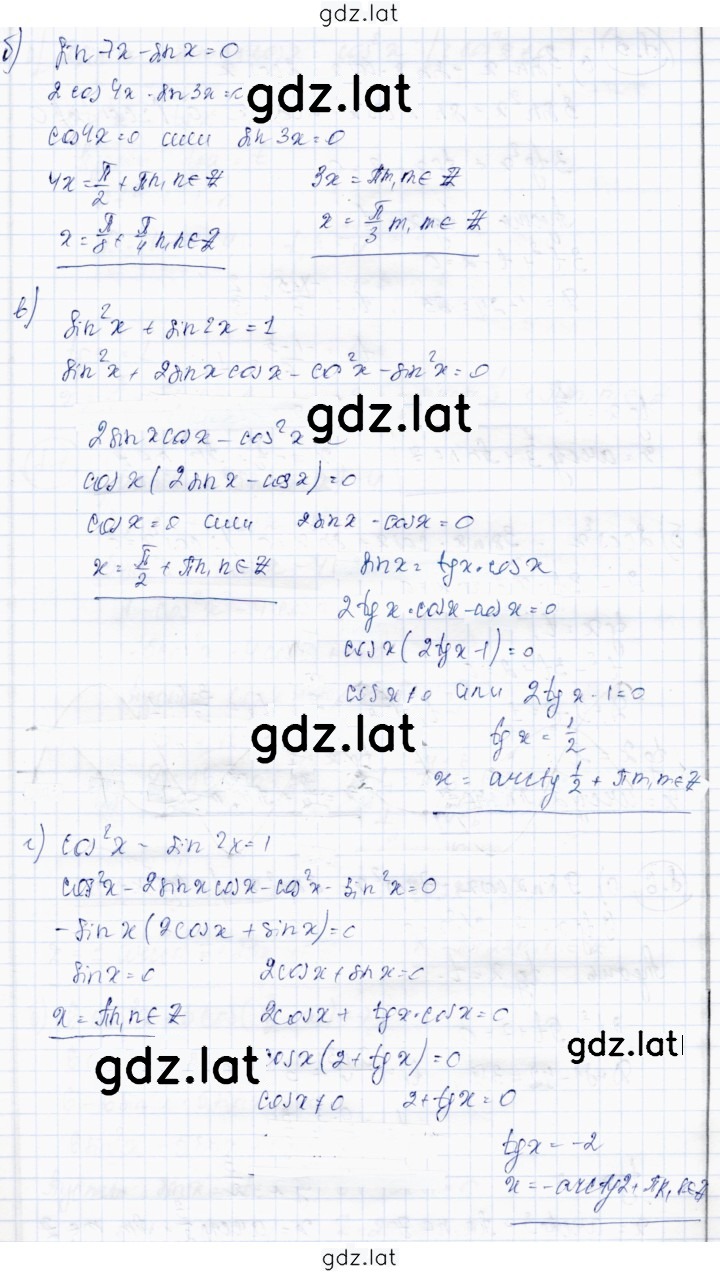 gdz.lat
б) sin 7x - sin x = 0
2 cos 4x · sin 3x = 0
gdz.lat
cos 4x = 0 или sin 3x = 0
4x = π/2 + πn, n ∈ Z 3x = πm, m ∈ Z
x = π/8 + π/4 n, n ∈ Z x = π/3 m, m ∈ Z
в) sin²x + sin 2x = 1
sin²x + 2 sin x cos x - cos²x - sin²x = 0
gdz.lat
2 sin x cos x - cos²x
cos x (2 sin x - cos x) = 0
cos x = 0 или 2 sin x - cos x = 0
x = π/2 + πn, n ∈ Z sin x = tg x · cos x
2 tg x · cos x - cos x = 0
cos x (2 tg x - 1) = 0
cos x ≠ 0 или 2 tg x - 1 = 0
gdz.lat
tg x = 1/2
x = arctg 1/2 + πm, m ∈ Z
г) cos²x - sin 2x = 1
cos²x - 2 sin x cos x - cos²x - sin²x = 0
- sin x (2 cos x + sin x) = 0
sin x = 0 2 cos x + sin x = 0
x = πn, n ∈ Z 2 cos x + tg x · cos x = 0
gdz.lat cos x (2 + tg x) = 0 gdz.lat
cos x ≠ 0 2 + tg x = 0
tg x = -2
x = - arctg 2 + πk, k ∈ Z
gdz.lat